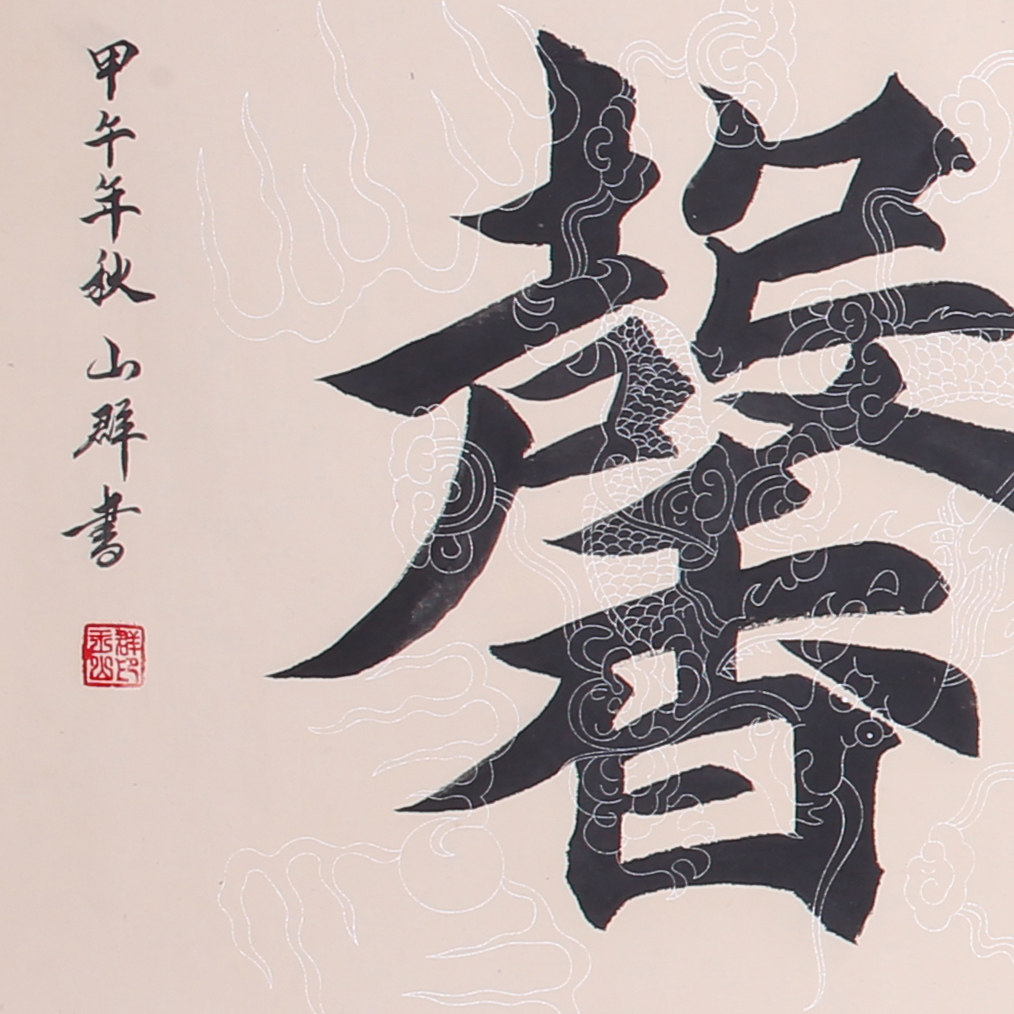 馨
甲午年秋山群書